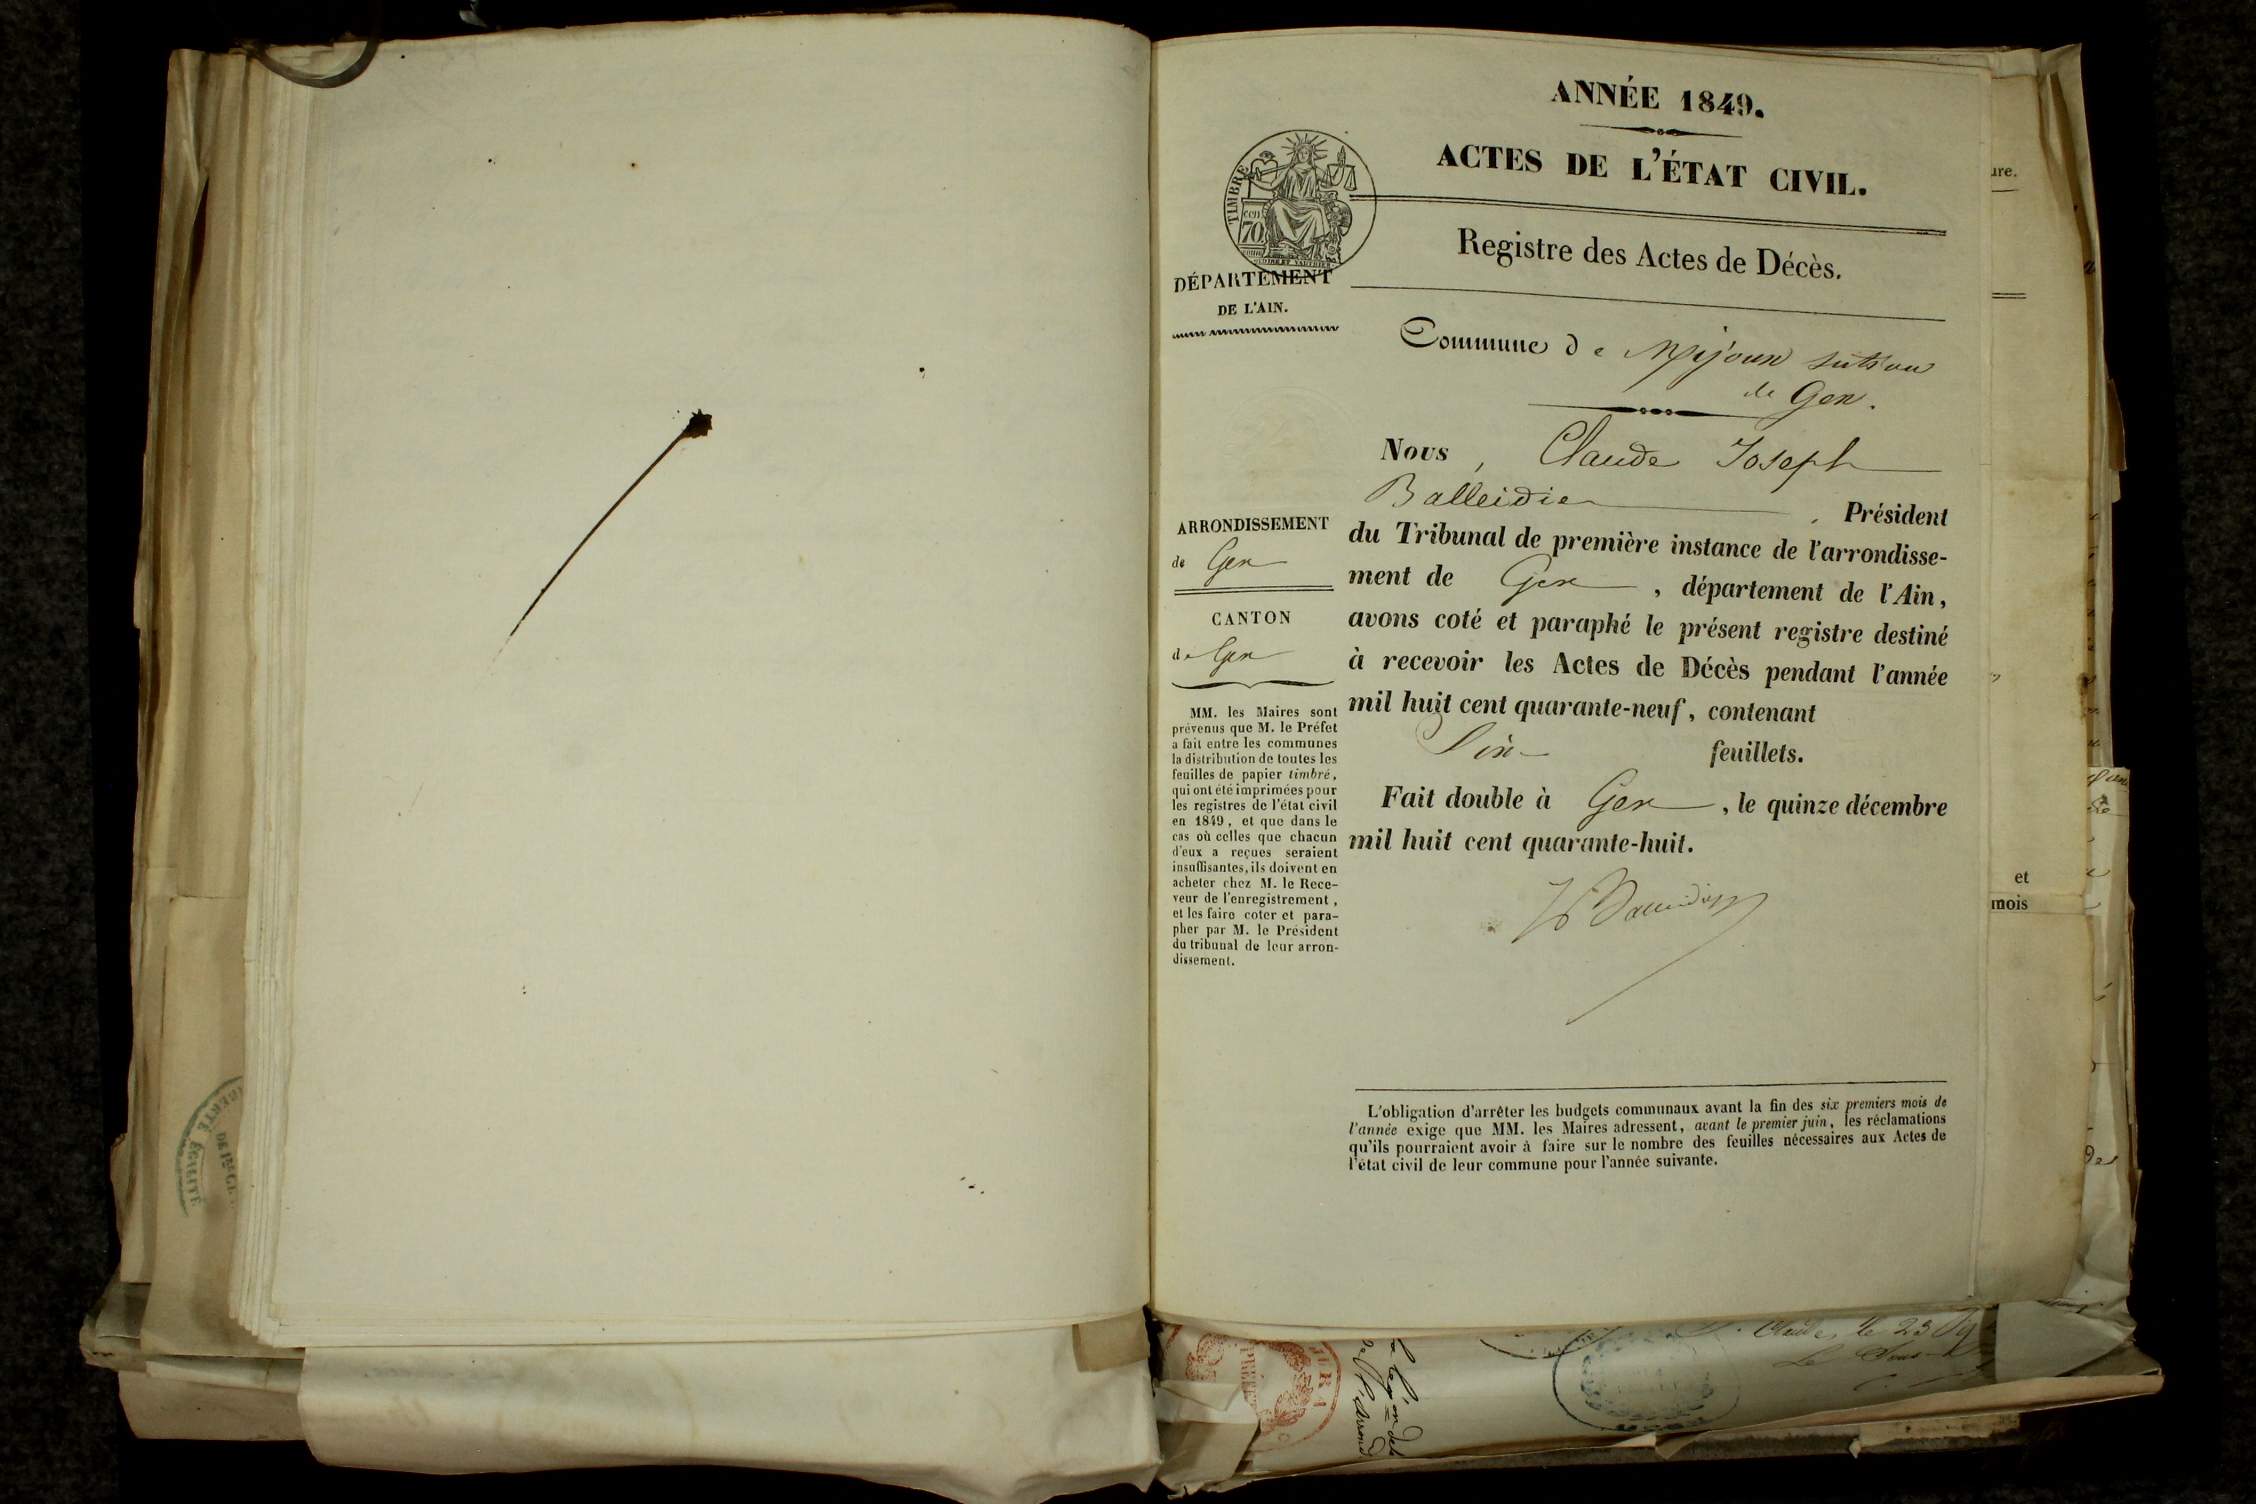 ANNÉE 1849.
ACTES DE L'ÉTAT CIVIL.
TIMBRE
70
Registre des Actes de Décès.
DÉPARTEMENT
DE L'AIN.
Commune de Mijoux
de Gex.
Nous, Claude Joseph
Balleidier, Président
du Tribunal de première instance de l'arrondisse-
ment de Gex, département de l'Ain,
avons coté et paraphé le présent registre destiné
à recevoir les Actes de Décès pendant l'année
mil huit cent quarante-neuf, contenant
Six feuillets.
Fait double à Gex, le quinze décembre
mil huit cent quarante-huit.
ARRONDISSEMENT
de Gex
CANTON
de Gex
MM. les Maires sont
prévenus que M. le Préfet
a fait entre les communes
la distribution de toutes les
feuilles de papier timbré,
qui ont été imprimées pour
les registres de l'état civil
en 1849, et que dans le
cas où celles que chacun
d'eux a reçues seraient
insuffisantes, ils doivent en
acheter chez M. le Rece-
veur de l'enregistrement,
et les faire coter et para-
pher par M. le Président
du tribunal de leur arron-
dissement.
L'obligation d'arrêter les budgets communaux avant la fin des six premiers mois de
l'année exige que MM. les Maires adressent, avant le premier juin, les réclamations
qu'ils pourraient avoir à faire sur le nombre des feuilles nécessaires aux Actes de
l'état civil de leur commune pour l'année suivante.
et
mois
ÉGALITÉ
JURA